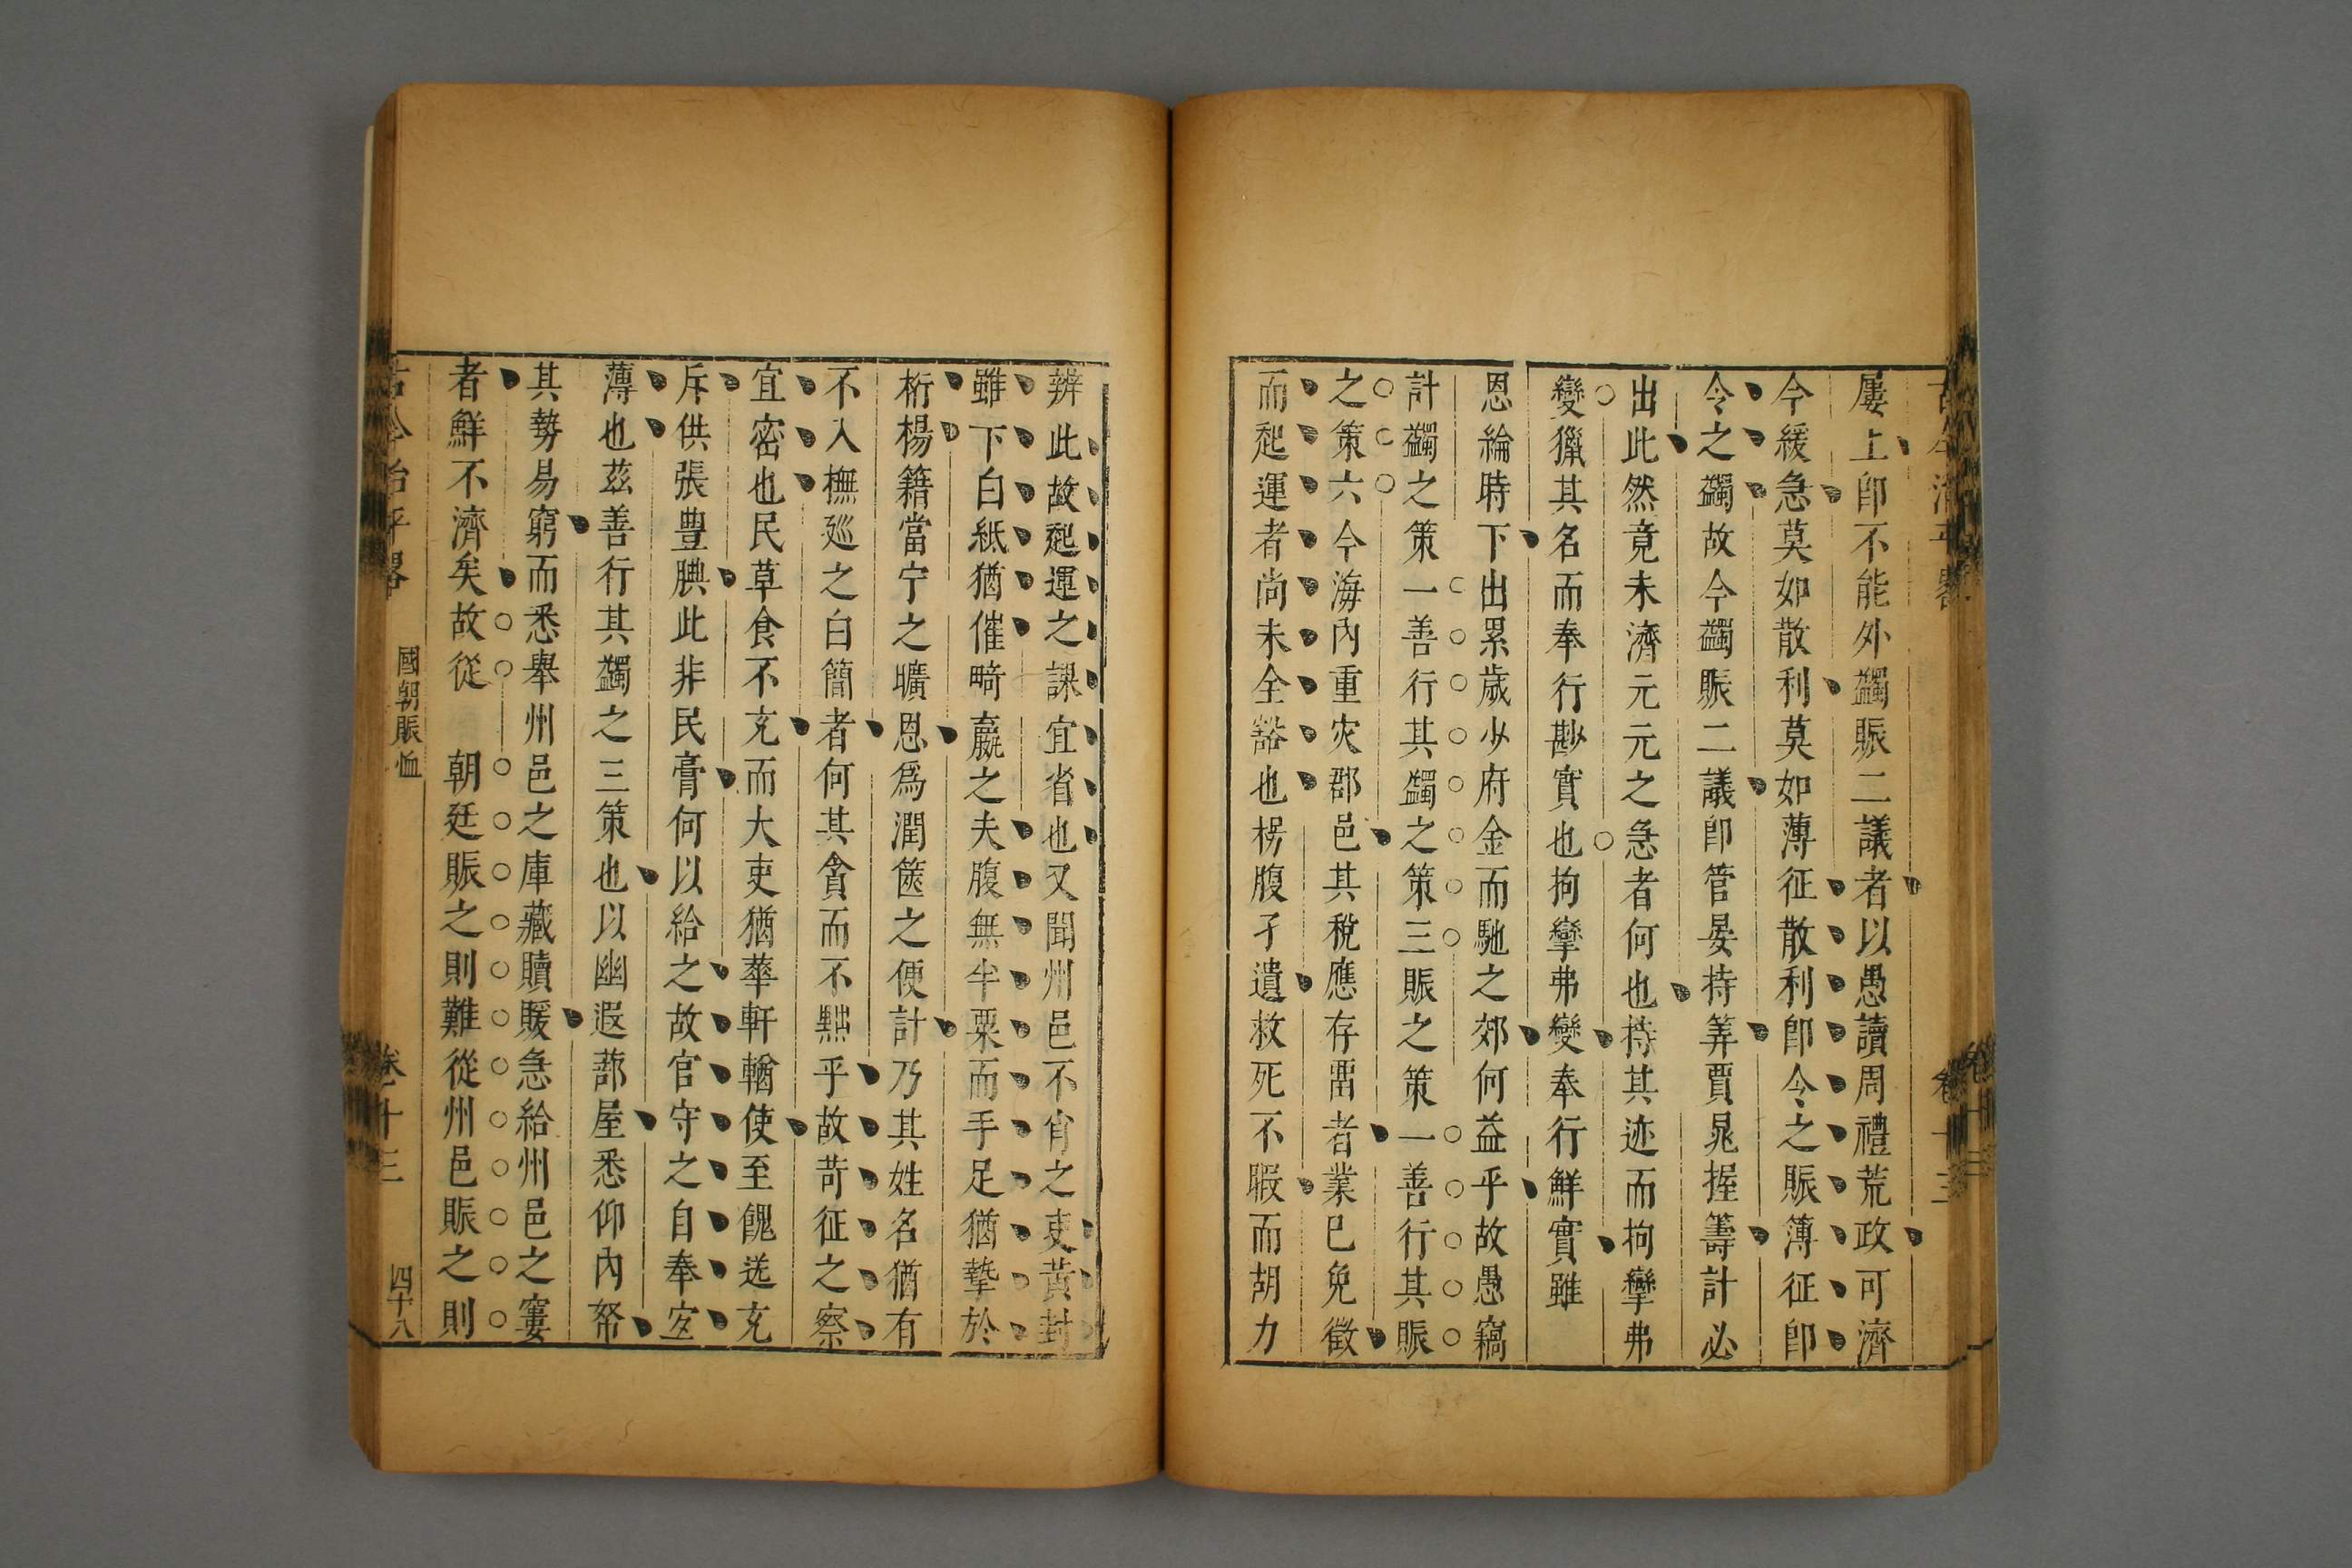 屢上卽不能外蠲賑二議者以愚讀周禮荒政可濟
今緩急莫如散利莫如薄征散利卽今之賑薄征卽
令之蠲故今蠲賑二議卽管晏持筭賈晁握籌計必
出此然竟未濟元元之急者何也持其迹而拘攣弗
變獵其名而奉行尠實也拘攣弗變奉行鮮實雖
恩綸時下出累歲少府金而馳之郊何益乎故愚竊
計蠲之策一善行其蠲之策三賑之策一善行其賑
之策六今海內重灾郡邑其稅應存畱者業已免徵
而起運者尚未全豁也枵腹孑遺救死不暇而胡力
辨此故起運之課宜省也又聞州邑不肯之吏黃封
雖下白紙猶催畸羸之夫腹無半粟而手足猶摯於
桁楊籍當宁之曠恩爲潤篋之便計乃其姓名猶有
不入撫廵之白簡者何其貪而不黜乎故苛征之察
宜密也民草食不充而大吏猶華軒輶使至餽送充
斥供張豊腆此非民膏何以給之故官守之自奉宐
薄也茲善行其蠲之三策也以幽遐蔀屋悉仰內帑
其勢易窮而悉舉州邑之庫藏贖鍰急給州邑之窶
者鮮不濟矣故從 朝廷賑之則難從州邑賑之則
古今治平畧 國朝賑恤 卷十三 四十八